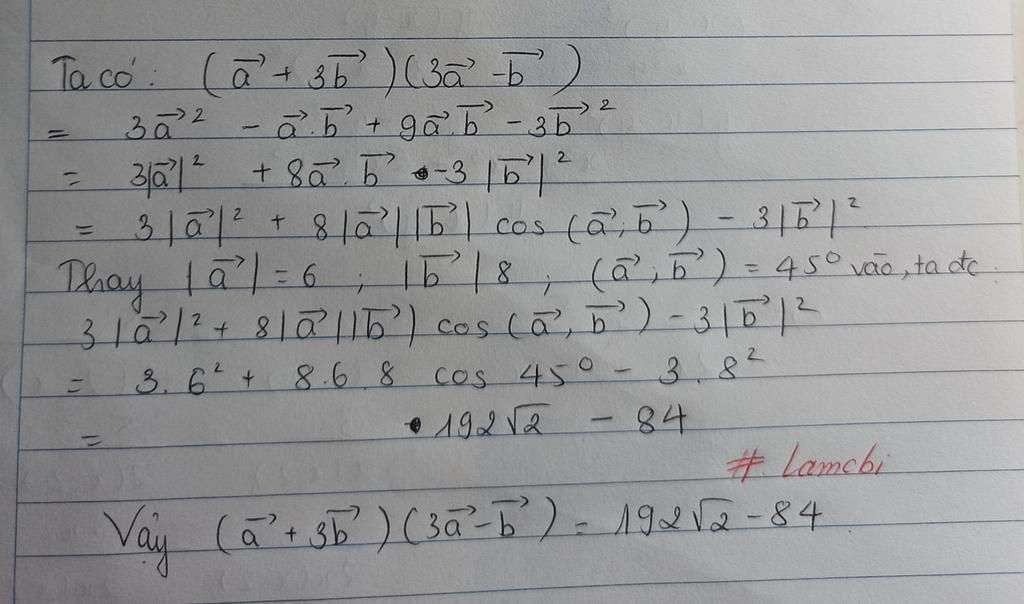 Ta có: (a⃗ + 3b⃗)(3a⃗ - b⃗)
= 3a⃗² - a⃗.b⃗ + 9a⃗.b⃗ - 3b⃗²
= 3|a⃗|² + 8a⃗.b⃗ - 3|b⃗|²
= 3|a⃗|² + 8|a⃗||b⃗| cos (a⃗;b⃗) - 3|b⃗|²
Thay |a⃗| = 6 ; |b⃗| 8 ; (a⃗,b⃗) = 45° vào, ta đc
3|a⃗|² + 8|a⃗||b⃗) cos (a⃗,b⃗) - 3|b⃗|²
= 3.6² + 8.6.8 cos 45° - 3.8²
= 192√2 - 84
# Lamchi
Vậy (a⃗ + 3b⃗)(3a⃗ - b⃗) = 192√2 - 84